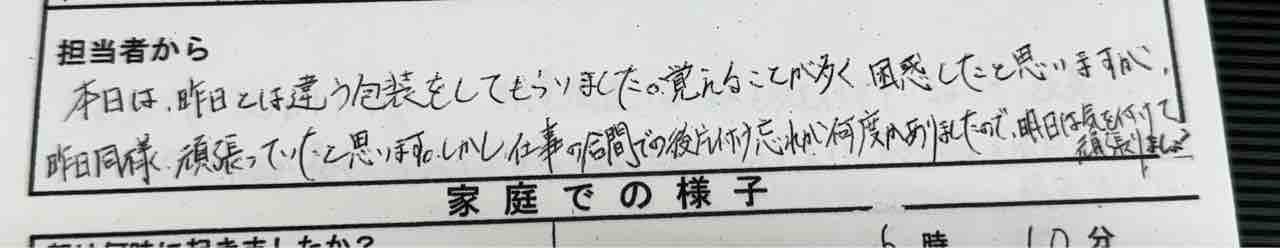 担当者から
本日は、昨日とは違う包装をしてもらいました。覚えることが多く、困惑したと思いますが、
昨日同様、頑張っていたと思います。しかし、仕事の合間での後片付け忘れが何度かありましたので、明日は気を付けて
頑張りましょう
家庭での様子
朝は何時に起きましたか?
6時10分